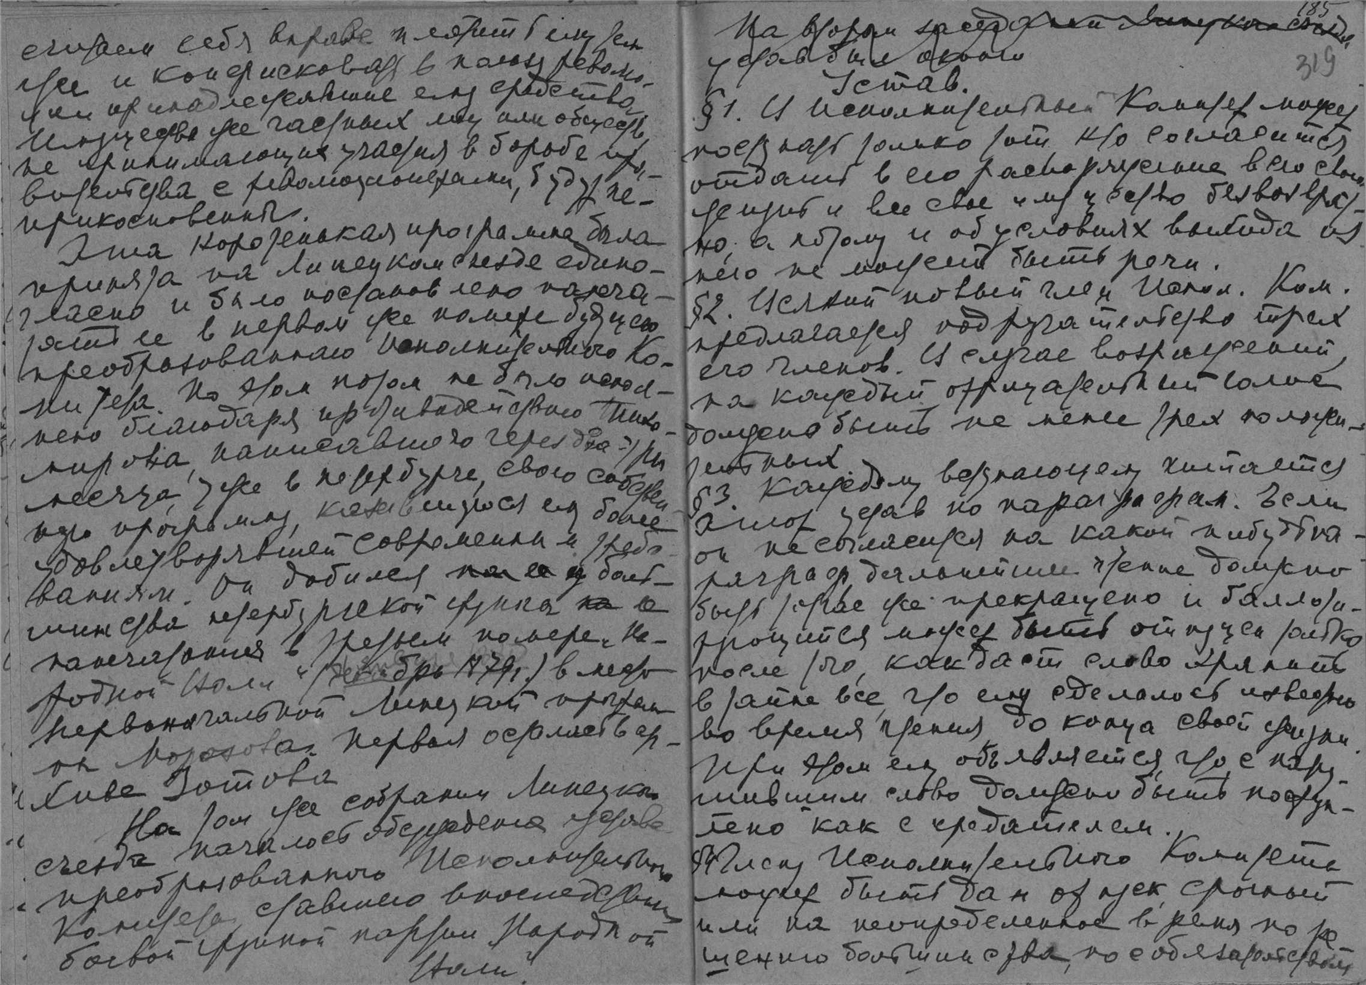 считаем себя вправе платить ему тем
же и конфисковать в пользу револю-
ции принадлежавшие ему средства.
Имущества же частных лиц или обществ,
не принимающих участия в борьбе пра-
вительства с революционерами, будут не-
прикосновенны.
Эта коротенькая программа была
принята на Липецком съезде едино-
гласно и было постановлено напеча-
тать ее в первом же номере будущего
преобразованного Исполнительного Ко-
митета. Но этом потом не было испол-
нено благодаря противодействию Тихо-
мирова, написавшего через два-три
месяца, уже в Петербурге, свою собствен-
ную программу, казавшуюся ему более
удовлетворявшей современным требо-
ваниям. Он добился боль-
шинства петербургской группы ее
напечатания в третьем номере "На-
родной Воли" (декабрь 1879 г.) в место
первоначальной Липецкой програм-
мы Морозова. Первая осталась в ар-
хиве Зотова
На том же собрании Липецкого
съезда началось обсуждение устава
преобразованного Исполнительного
Комитета, ставшего впоследствии
боевой группой партии "Народной
Воли".
185
319
На втором заседании Липецкого съезда
устав был окончен
Устав.
§1. В Исполнительный Комитет может
поступать только тот, кто согласится
отдать в его распоряжение всю свою
жизнь и все свое имущество безвозврат-
но, а потому и об условиях выхода из
него не может быть речи.
§2. Всякий новый член Испол. Ком.
предлагается под ручательство трех
его членов. В случае возражений,
на каждый отрицательный голос
должно быть не менее трех положи-
тельных.
§3. Каждому вступающему читается
этот устав по параграфам. Если
он не согласится на какой нибудь па-
раграф, дальнейшее чтение должно
быть тотчас же прекращено и баллоти-
рующийся может быть отпущен только
после того, как даст слово хранить
в тайне все, что ему сделалось известно
во время чтения, до конца своей жизни.
При этом ему объявляется, что с нару-
шившим слово должно быть поступ-
лено как с предателем.
§4. Члену Исполнительного Комитета
может быть дан отпуск, срочный
или на неопределенное время по ре-
шению большинства, но с обязательством